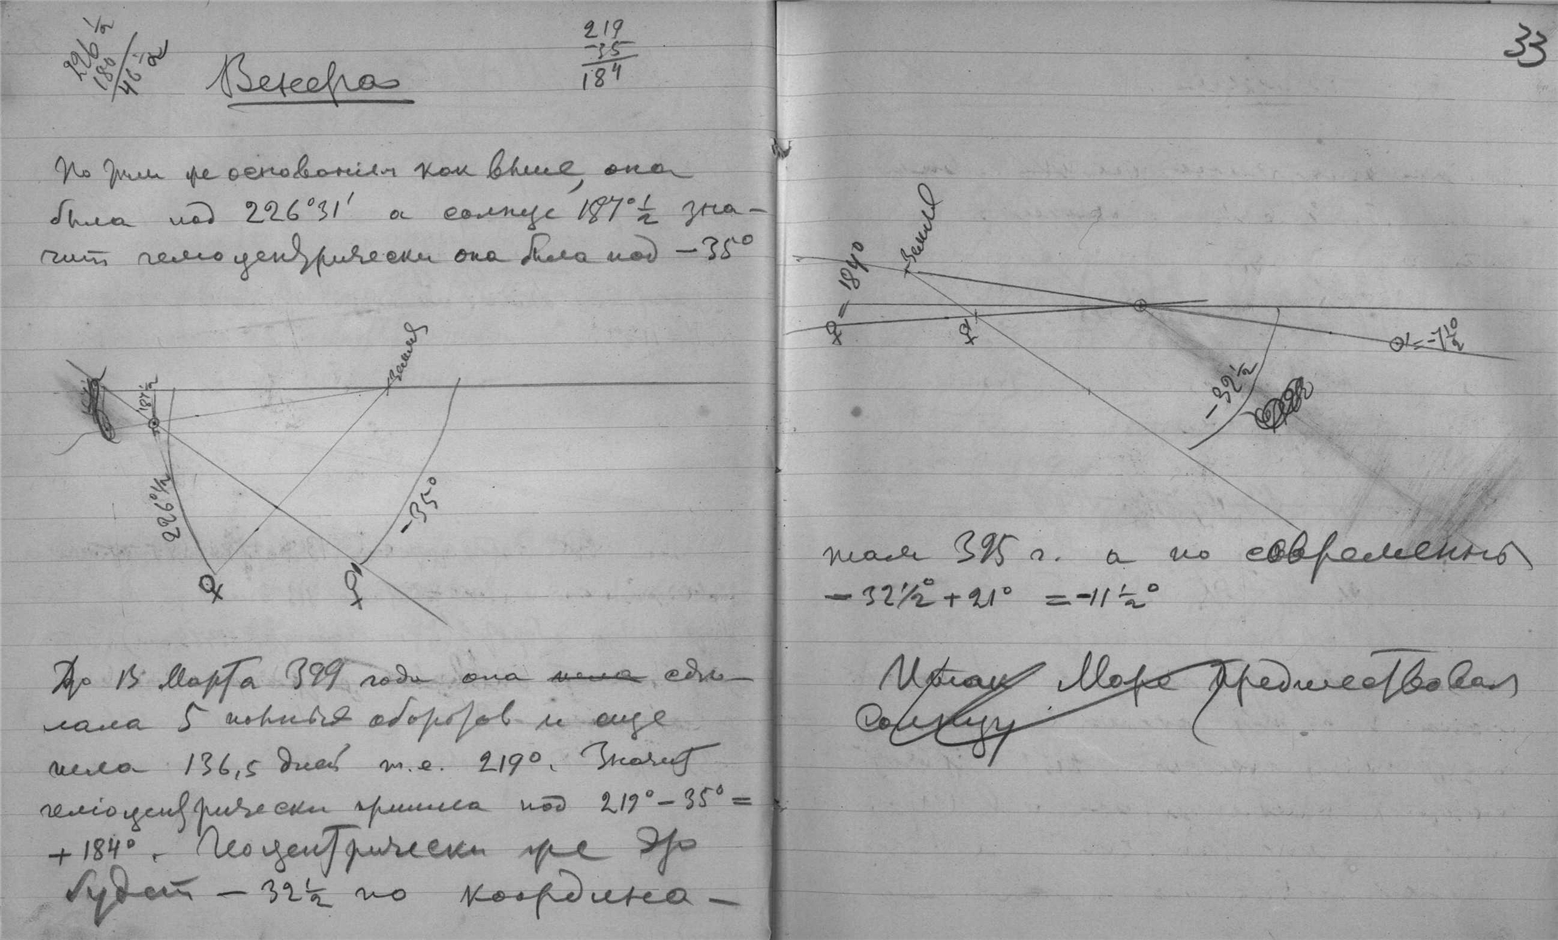 226 1/2
180
46 1/2
219
-35
184
Венера
По тем же основаніям как выше, она
была под 226°31′ а солнце 187° 1/2 зна-
чит гелиоцентрически она была под -35°
Земля
187 1/2
226° 1/2
-35°
♀
♀
До 15 Марта 399 года она шла сде-
лала 5 полные оборотов и еще
шла 136,5 дней т.е. 219°. Значит
гелиоцентрически пришла под 219° - 35° =
+ 184°. Геоцентрически же это
будет - 32 1/2 по координа-
33
♀ = 184°
Земля
♀
☉ = -7 1/2°
-32 1/2
там 395 г. а по современны
- 32 1/2° + 21° = -11 1/2°
Итак Марс предшествовал
Солнцу